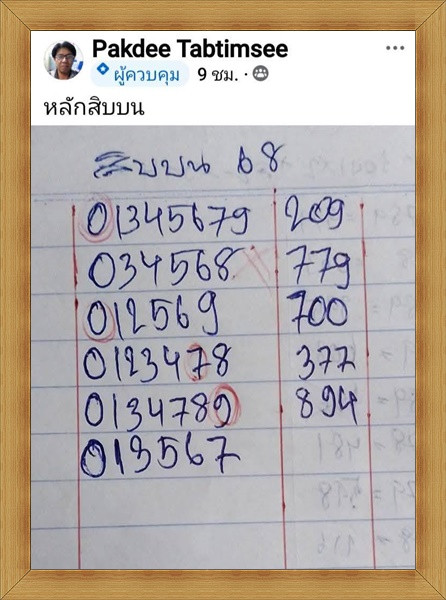 Pakdee Tabtimsee
ผู้ควบคุม 9 ชม.
หลักสิบบน
สิบบน 68
01345679 209
034568 779
012569 700
0123478 377
0134789 894
013567